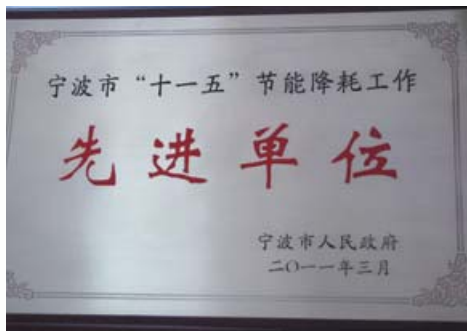 宁波市“十一五”节能降耗工作
先进单位
宁波市人民政府
二〇一一年三月